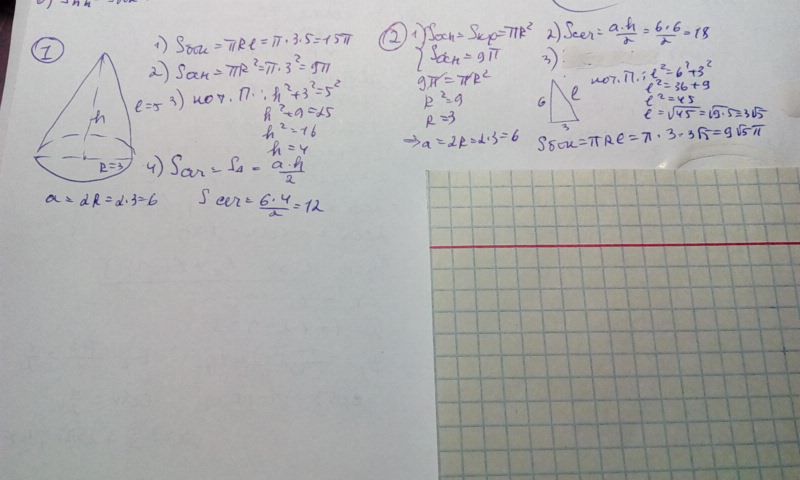 ①
1) Sбок = πRl = π·3·5 = 15π
2) Sосн = πR² = π·3² = 9π
l=5
3) по т. П.: h²+3²=5²
h²+9=25
h²=16
h=4
h
R=3
4) Sсеч = S△ = a·h/2
a = 2R = 2·3 = 6
Sсеч = 6·4/2 = 12
②
1) Sосн = Sкр = πR²
Sосн = 9π
9π = πR²
R²=9
R=3
⇒ a = 2R = 2·3 = 6
2) Sсеч = a·h/2 = 6·6/2 = 18
3)
по т. П.: l²=6²+3²
l²=36+9
l²=45
l=√45=√9·5=3√5
6
l
3
Sбок = πRl = π·3·3√5 = 9√5π